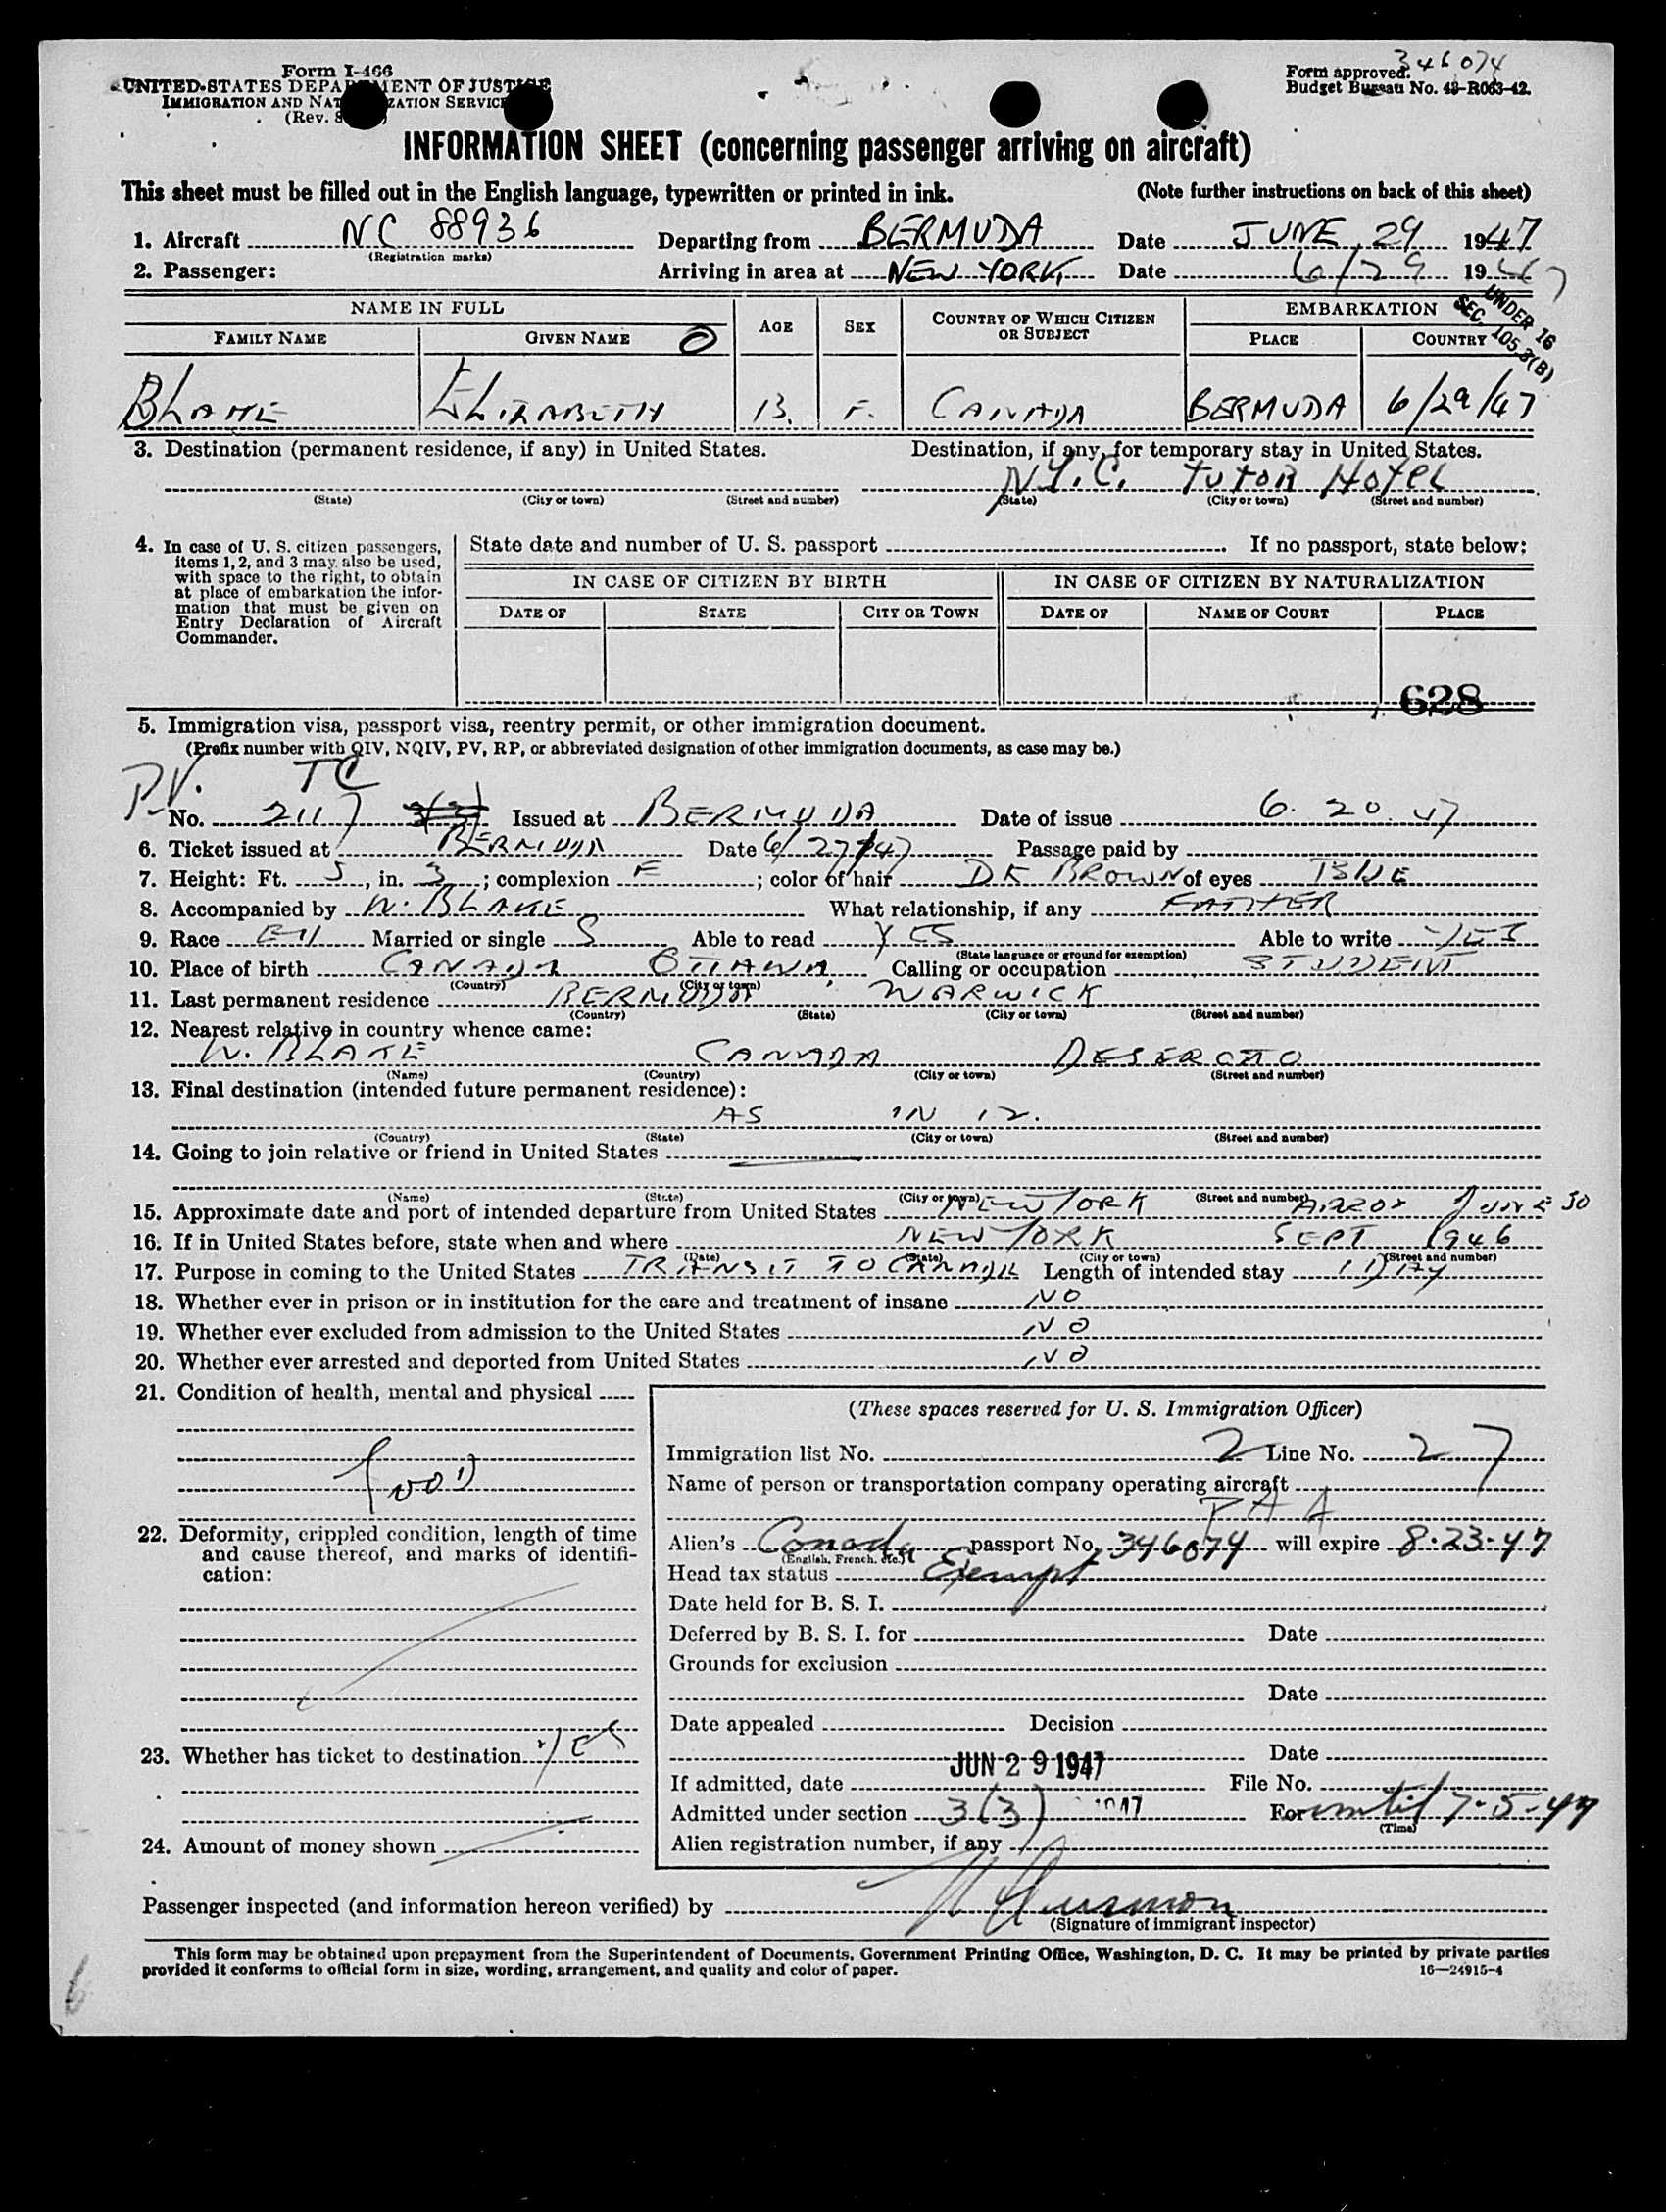 346074
Form I-466
UNITED STATES DEPARTMENT OF JUSTICE
IMMIGRATION AND NATURALIZATION SERVICE
(Rev. 8
Form approved.
Budget Bureau No. 43-R063-42.
INFORMATION SHEET (concerning passenger arriving on aircraft)
This sheet must be filled out in the English language, typewritten or printed in ink. (Note further instructions on back of this sheet)
1. Aircraft NC 88936 Departing from BERMUDA Date JUNE 29 1947
(Registration marks)
2. Passenger: Arriving in area at NEW YORK Date 6/29 1947
UNDER 16
SEC. 105.3(B)
NAME IN FULL AGE SEX COUNTRY OF WHICH CITIZEN OR SUBJECT EMBARKATION
FAMILY NAME GIVEN NAME PLACE COUNTRY
BLAKE ELIZABETH 13. F. CANADA BERMUDA 6/29/47
3. Destination (permanent residence, if any) in United States. Destination, if any, for temporary stay in United States.
N.Y.C. TUTOR HOTEL
(State) (City or town) (Street and number) (State) (City or town) (Street and number)
4. In case of U. S. citizen passengers, items 1, 2, and 3 may also be used, with space to the right, to obtain at place of embarkation the information that must be given on Entry Declaration of Aircraft Commander.
State date and number of U. S. passport If no passport, state below:
IN CASE OF CITIZEN BY BIRTH IN CASE OF CITIZEN BY NATURALIZATION
DATE OF STATE CITY OR TOWN DATE OF NAME OF COURT PLACE
628
5. Immigration visa, passport visa, reentry permit, or other immigration document.
(Prefix number with QIV, NQIV, PV, RP, or abbreviated designation of other immigration documents, as case may be.)
P.V. TC
No. 2117 3(3) Issued at BERMUDA Date of issue 6. 20. 47
6. Ticket issued at BERMUDA Date 6/27/47 Passage paid by
7. Height: Ft. 5, in. 3; complexion F; color of hair DK BROWN of eyes BLUE
8. Accompanied by W. BLAKE What relationship, if any FATHER
9. Race Married or single S Able to read YES Able to write YES
(State language or ground for exemption)
10. Place of birth CANADA OTTAWA Calling or occupation STUDENT
(Country) (City or town)
11. Last permanent residence BERMUDA WARWICK
(Country) (State) (City or town) (Street and number)
12. Nearest relative in country whence came:
W. BLAKE CANADA
(Name) (Country) (City or town) (Street and number)
13. Final destination (intended future permanent residence):
AS IN 12.
(Country) (State) (City or town) (Street and number)
14. Going to join relative or friend in United States
(Name) (State) (City or town) (Street and number)
15. Approximate date and port of intended departure from United States NEW YORK JUNE 30
16. If in United States before, state when and where NEW YORK SEPT 1946
(Date) (State) (City or town) (Street and number)
17. Purpose in coming to the United States TRANSIT TO CANADA Length of intended stay 1 DAY
18. Whether ever in prison or in institution for the care and treatment of insane NO
19. Whether ever excluded from admission to the United States NO
20. Whether ever arrested and deported from United States NO
21. Condition of health, mental and physical
Good
22. Deformity, crippled condition, length of time and cause thereof, and marks of identification:
23. Whether has ticket to destination Yes
24. Amount of money shown
(These spaces reserved for U. S. Immigration Officer)
Immigration list No. 2 Line No. 27
Name of person or transportation company operating aircraft
PAA
Alien's Canada passport No. 346074 will expire 8-23-47
(English, French, etc.)
Head tax status Exempt
Date held for B. S. I.
Deferred by B. S. I. for Date
Grounds for exclusion
Date
Date appealed Decision
Date
If admitted, date JUN 29 1947 File No.
Admitted under section 3(3) 1947 For until 7-5-47
(Time)
Alien registration number, if any
Passenger inspected (and information hereon verified) by
(Signature of immigrant inspector)
This form may be obtained upon prepayment from the Superintendent of Documents, Government Printing Office, Washington, D. C. It may be printed by private parties
provided it conforms to official form in size, wording, arrangement, and quality and color of paper. 16—24915-4